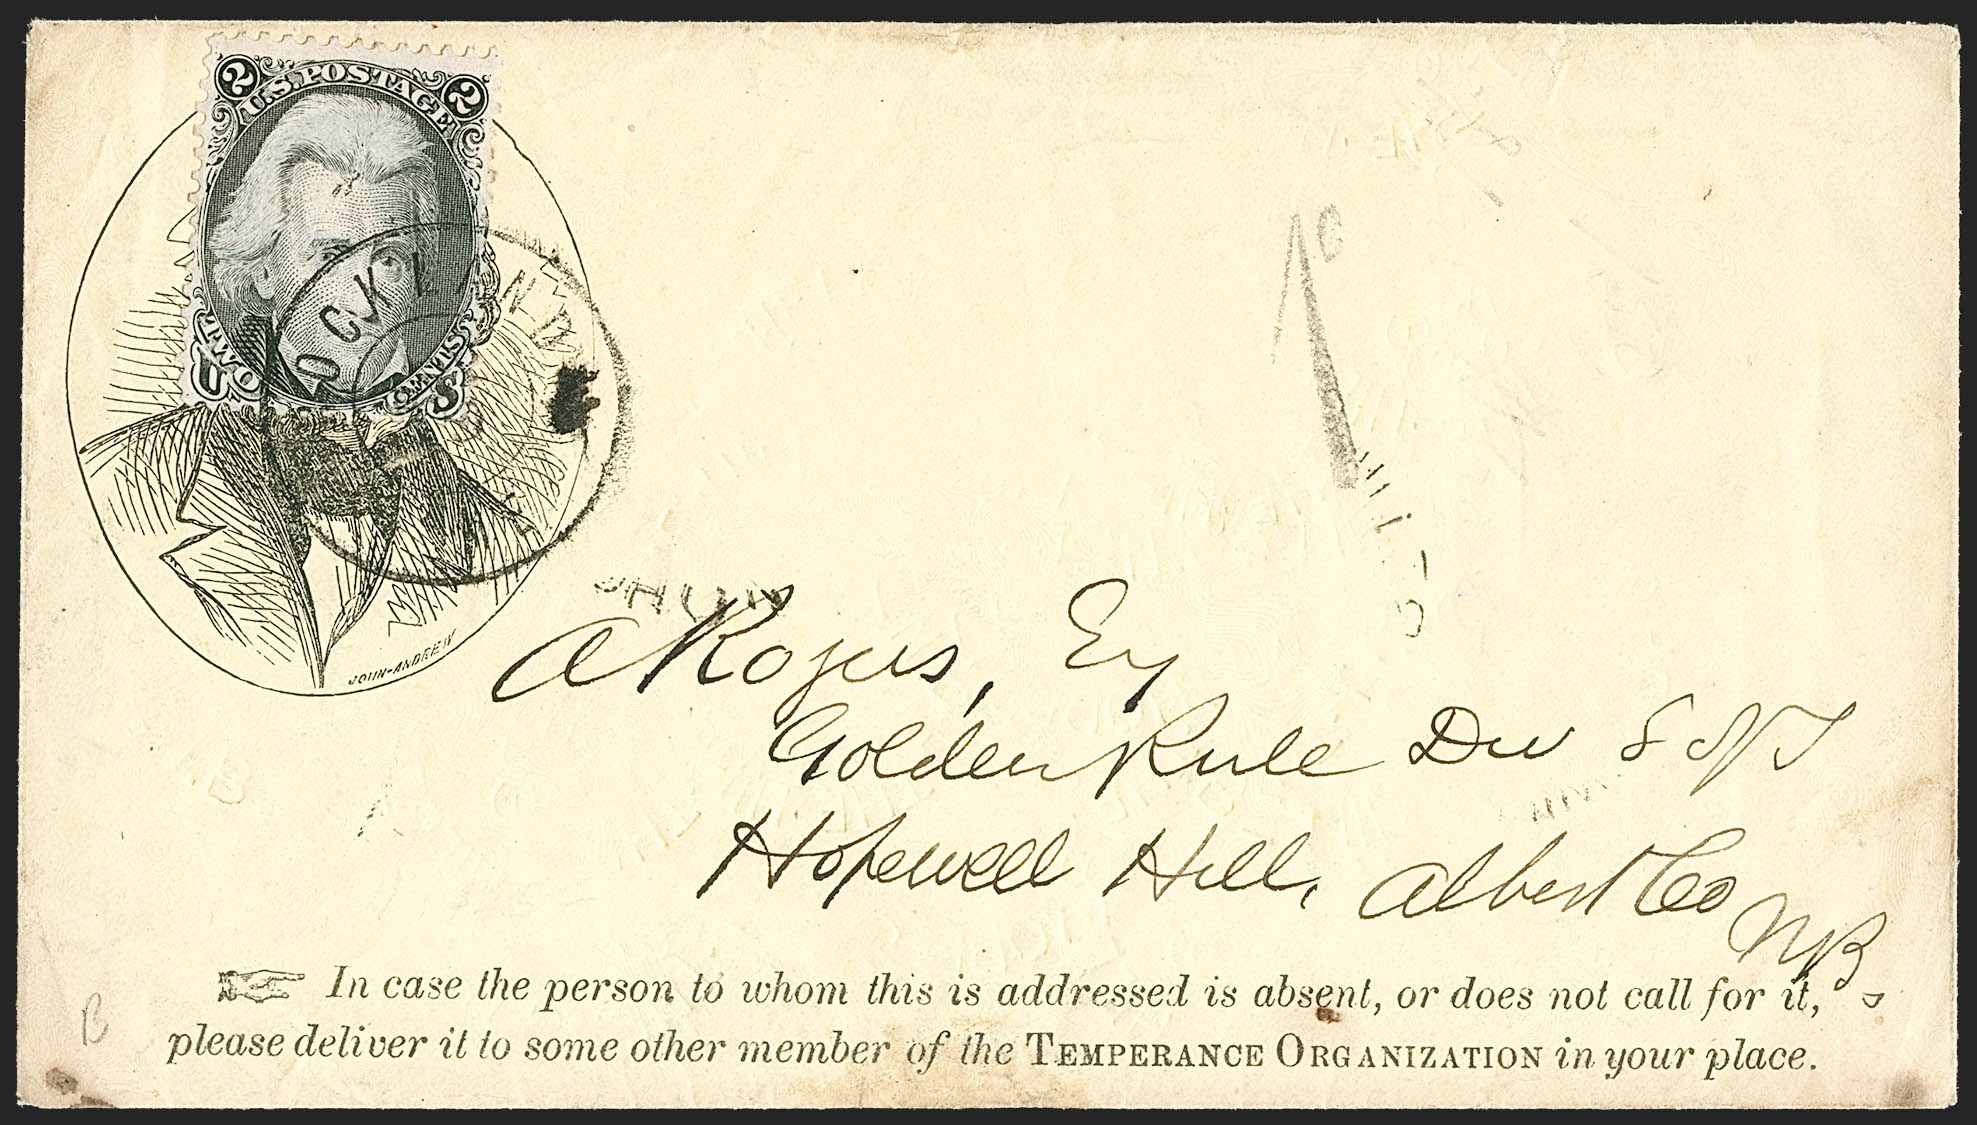 2 U.S. POSTAGE 2
TWO CENTS
U S
JOHN-ANDREW
A Rogers, Esq
Golden Rule Div S of T
Hopewell Hill, Albert Co
NB
In case the person to whom this is addressed is absent, or does not call for it,
please deliver it to some other member of the TEMPERANCE ORGANIZATION in your place.
B